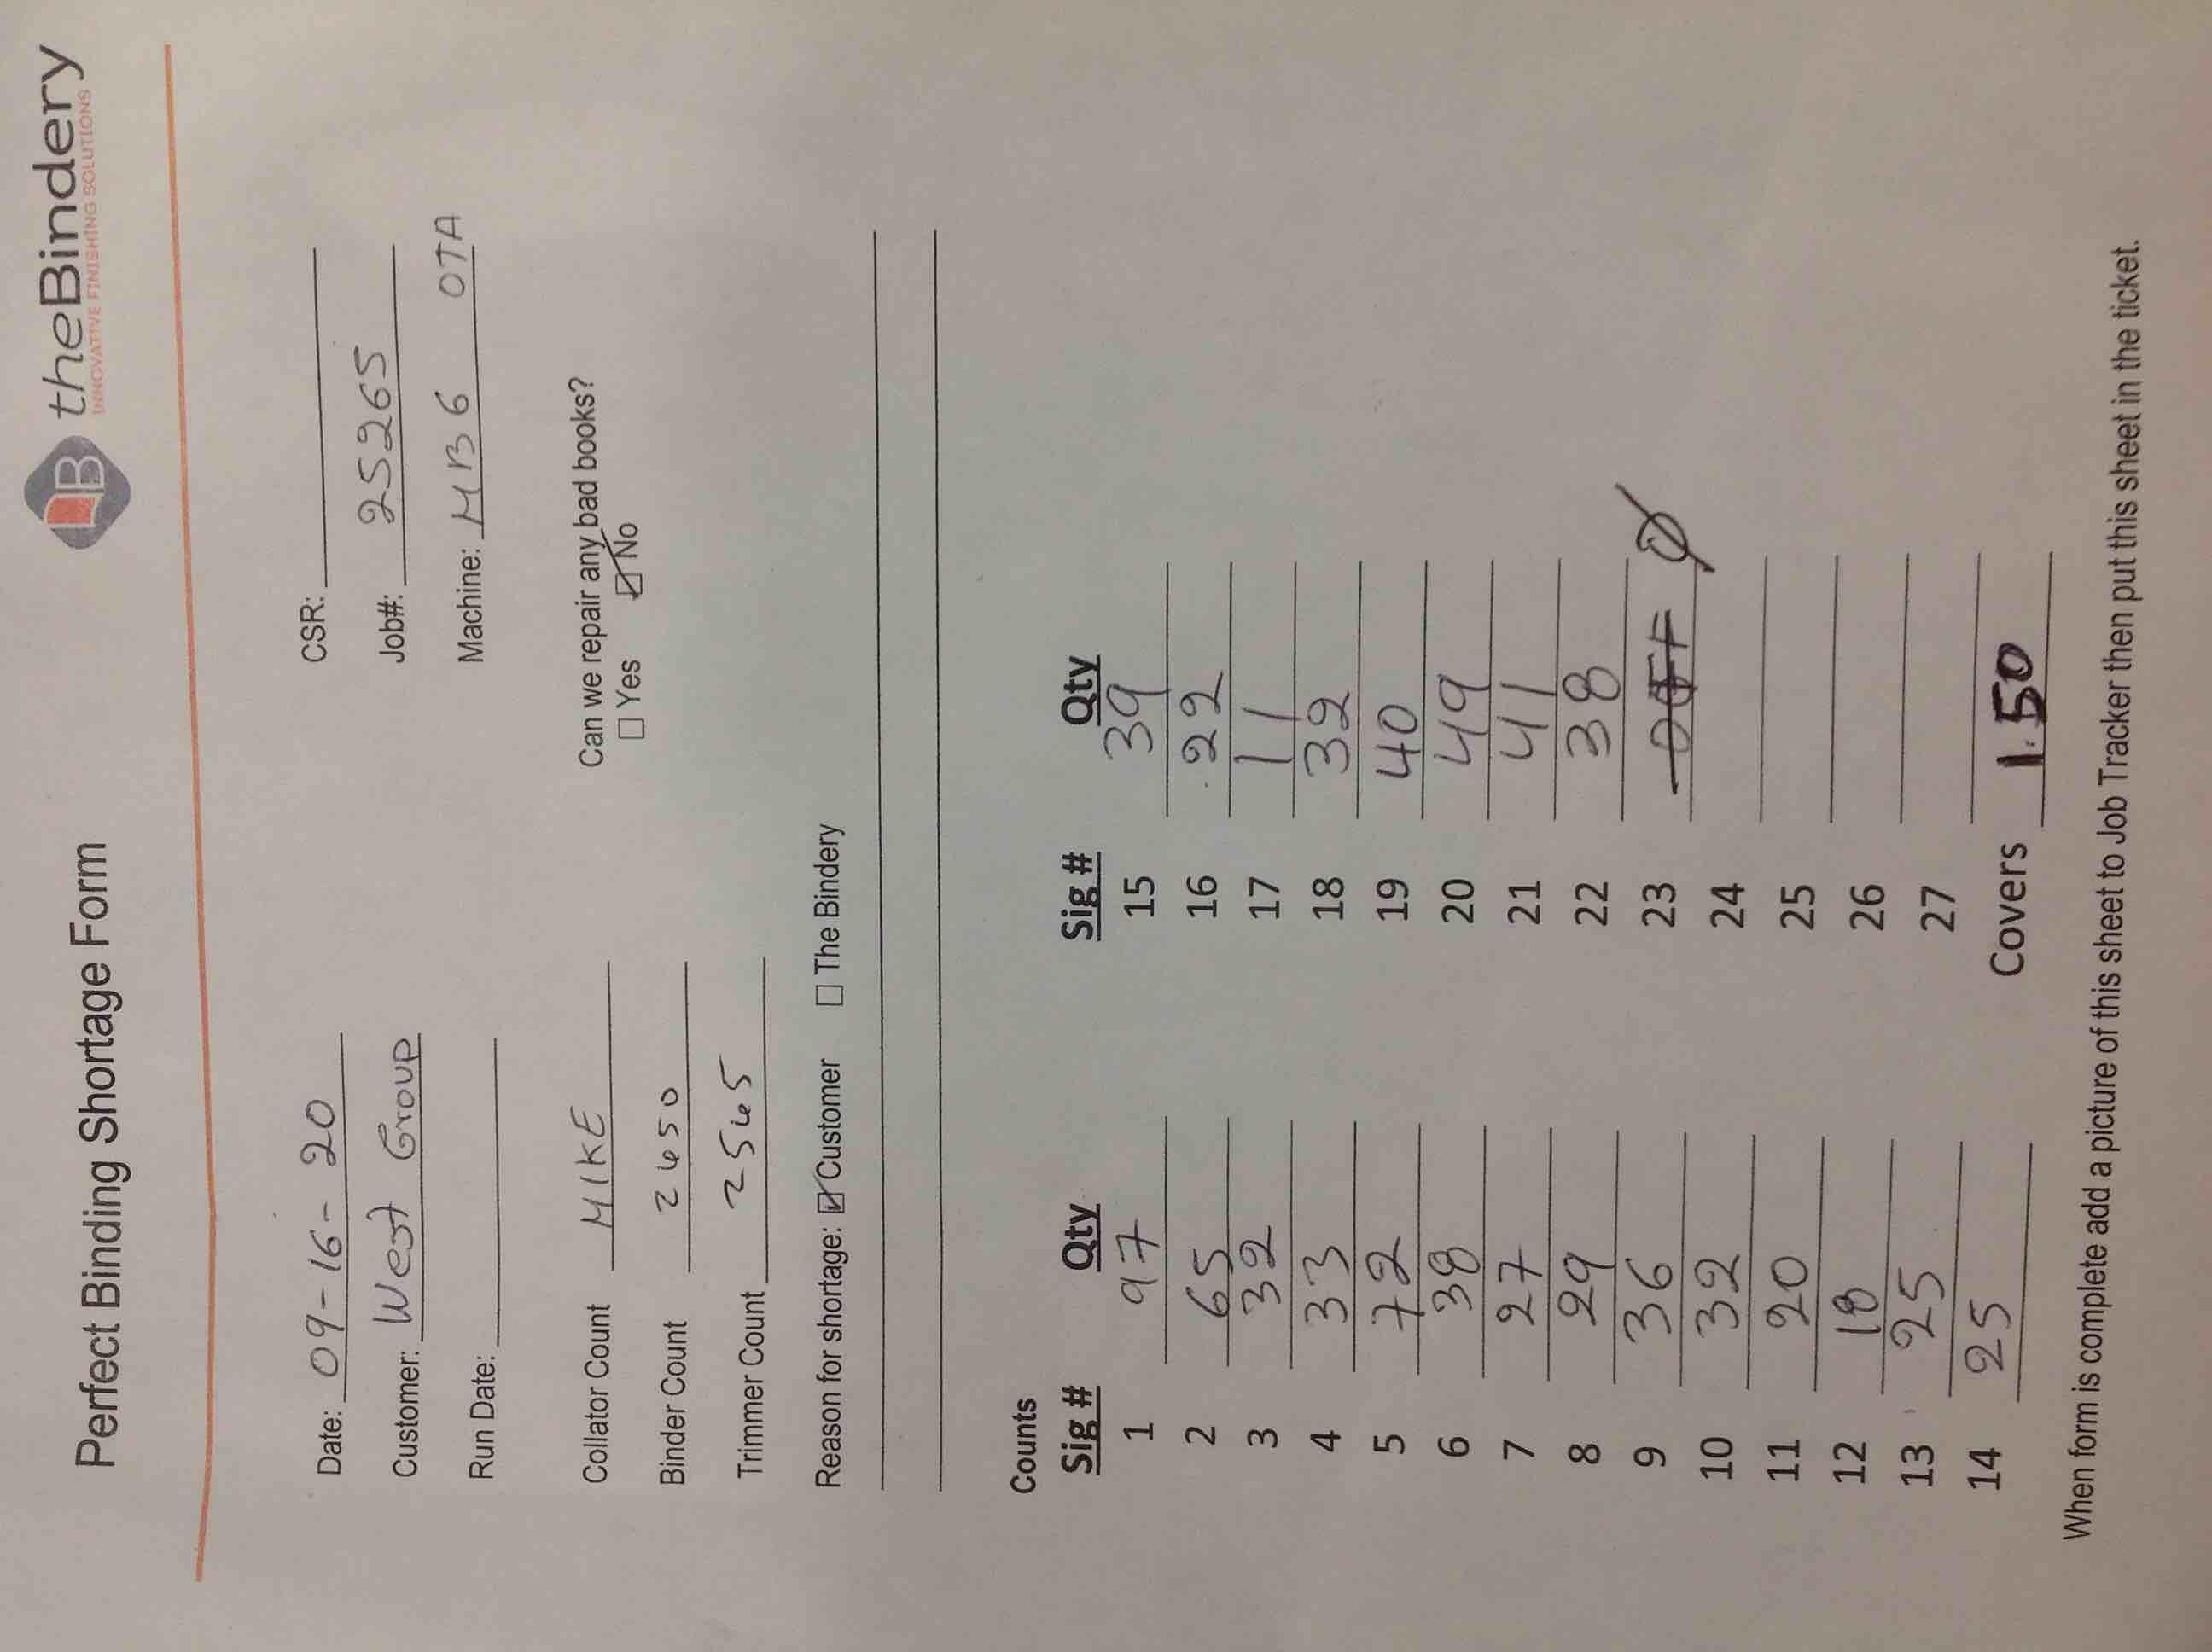 theBindery
INNOVATIVE FINISHING SOLUTIONS
Perfect Binding Shortage Form
Date: 09-16-20 CSR:
Customer: West Group Job#: 25265
Run Date: Machine: MB6 OTA
Collator Count MIKE Can we repair any bad books?
☐ Yes ☑ No
Binder Count 2650
Trimmer Count 2565
Reason for shortage: ☑ Customer ☐ The Bindery
Counts
Sig # Qty Sig # Qty
1 97 15 39
2 65 16 22
3 32 17 11
4 33 18 32
5 72 19 40
6 38 20 49
7 27 21 41
8 29 22 38
9 36 23 Ø
10 32 24
11 20 25
12 18 26
13 25 27
14 25 Covers 150
When form is complete add a picture of this sheet to Job Tracker then put this sheet in the ticket.